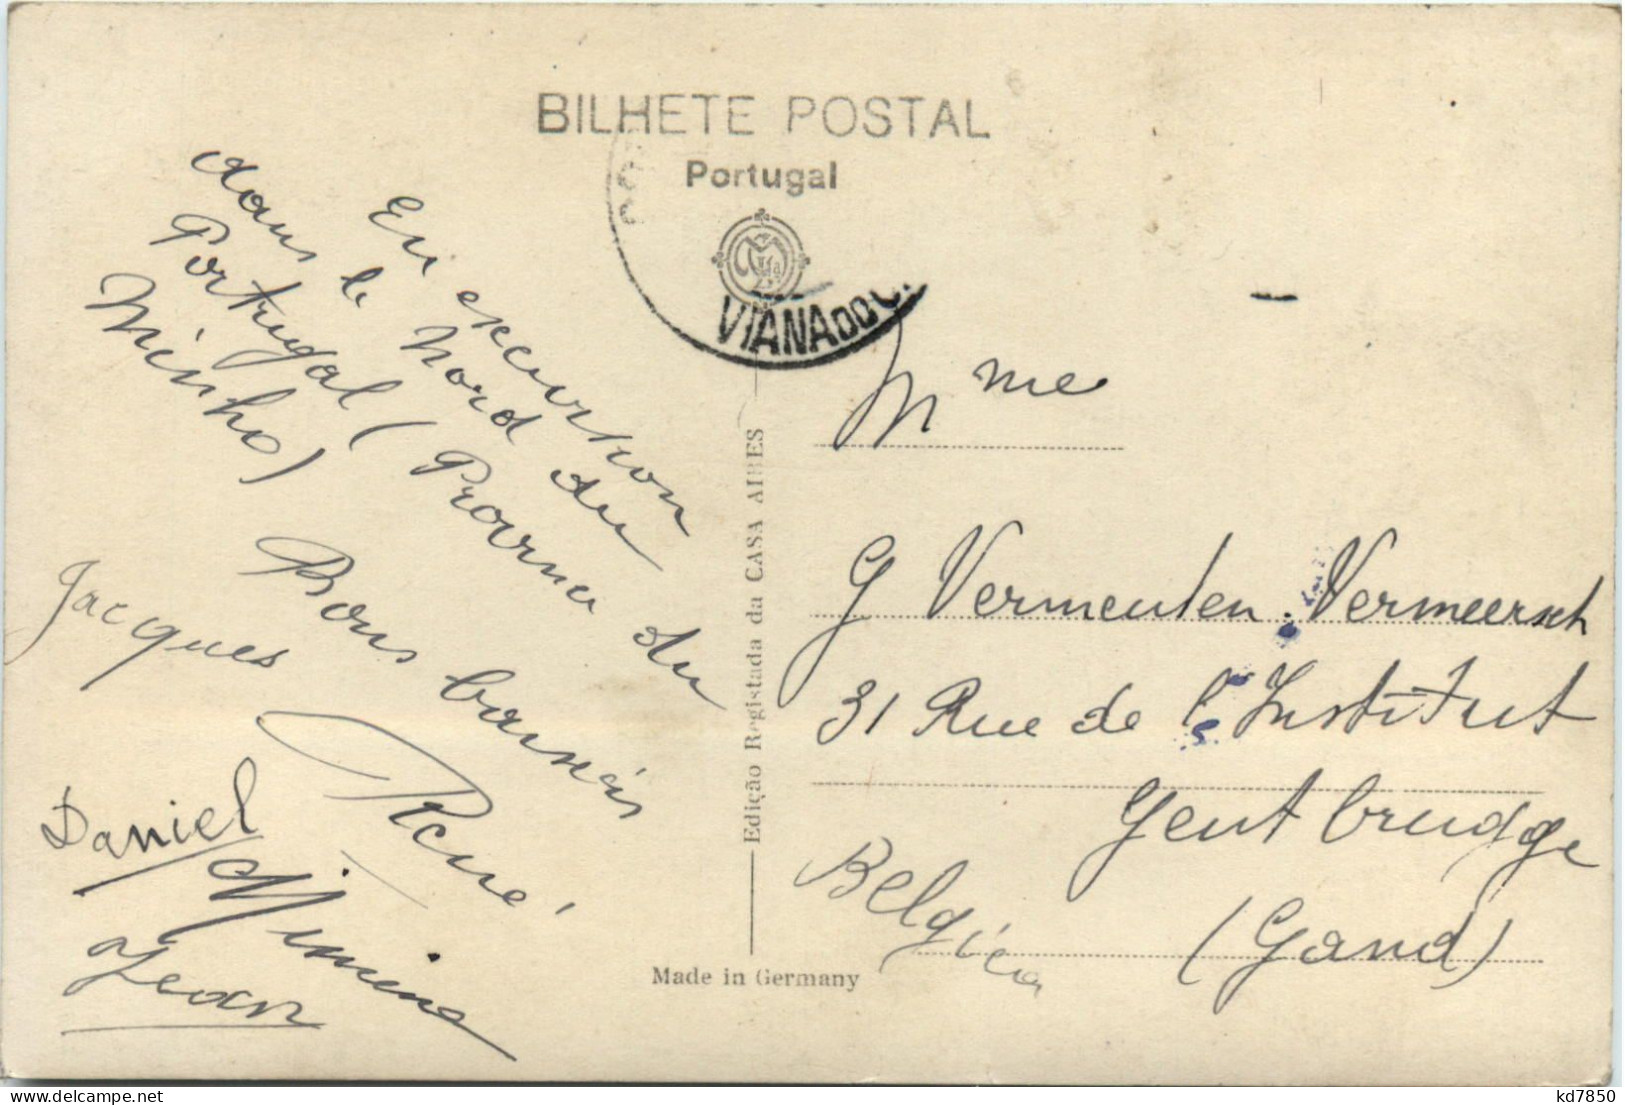 BILHETE POSTAL
Portugal
VIANA DO C.
En excursion
dans le Nord du
Portugal (Province du
Minho)
Bons baisers
Jacques
René
Daniel
Mimina
Jean
Edição Registada da CASA AIRES
Made in Germany
Mme
G Vermeulen-Vermeersch
31 Rue de l'Institut
Gentbrugge
(Gand)
Belgica
kd7850